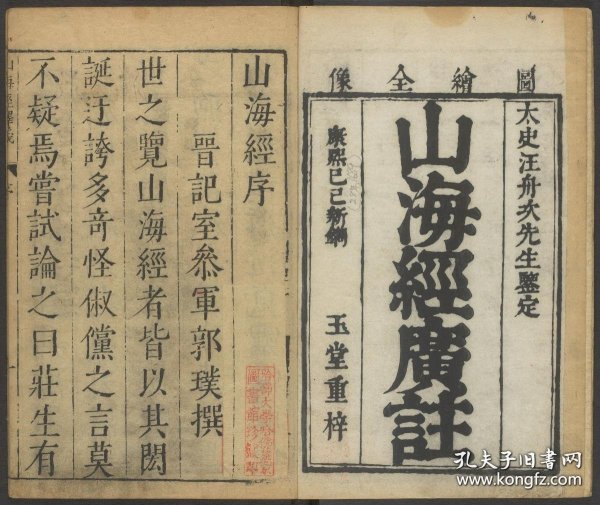 圖繪全像
太史汪舟次先生鑒定
山海經廣註
康熙己巳新鐫
玉堂重梓
山海經序
晉記室叅軍郭璞撰
世之覽山海經者皆以其閎
誕迂誇多竒怪俶儻之言莫
不疑焉嘗試論之曰莊生有
孔夫子旧书网
www.kongfz.com